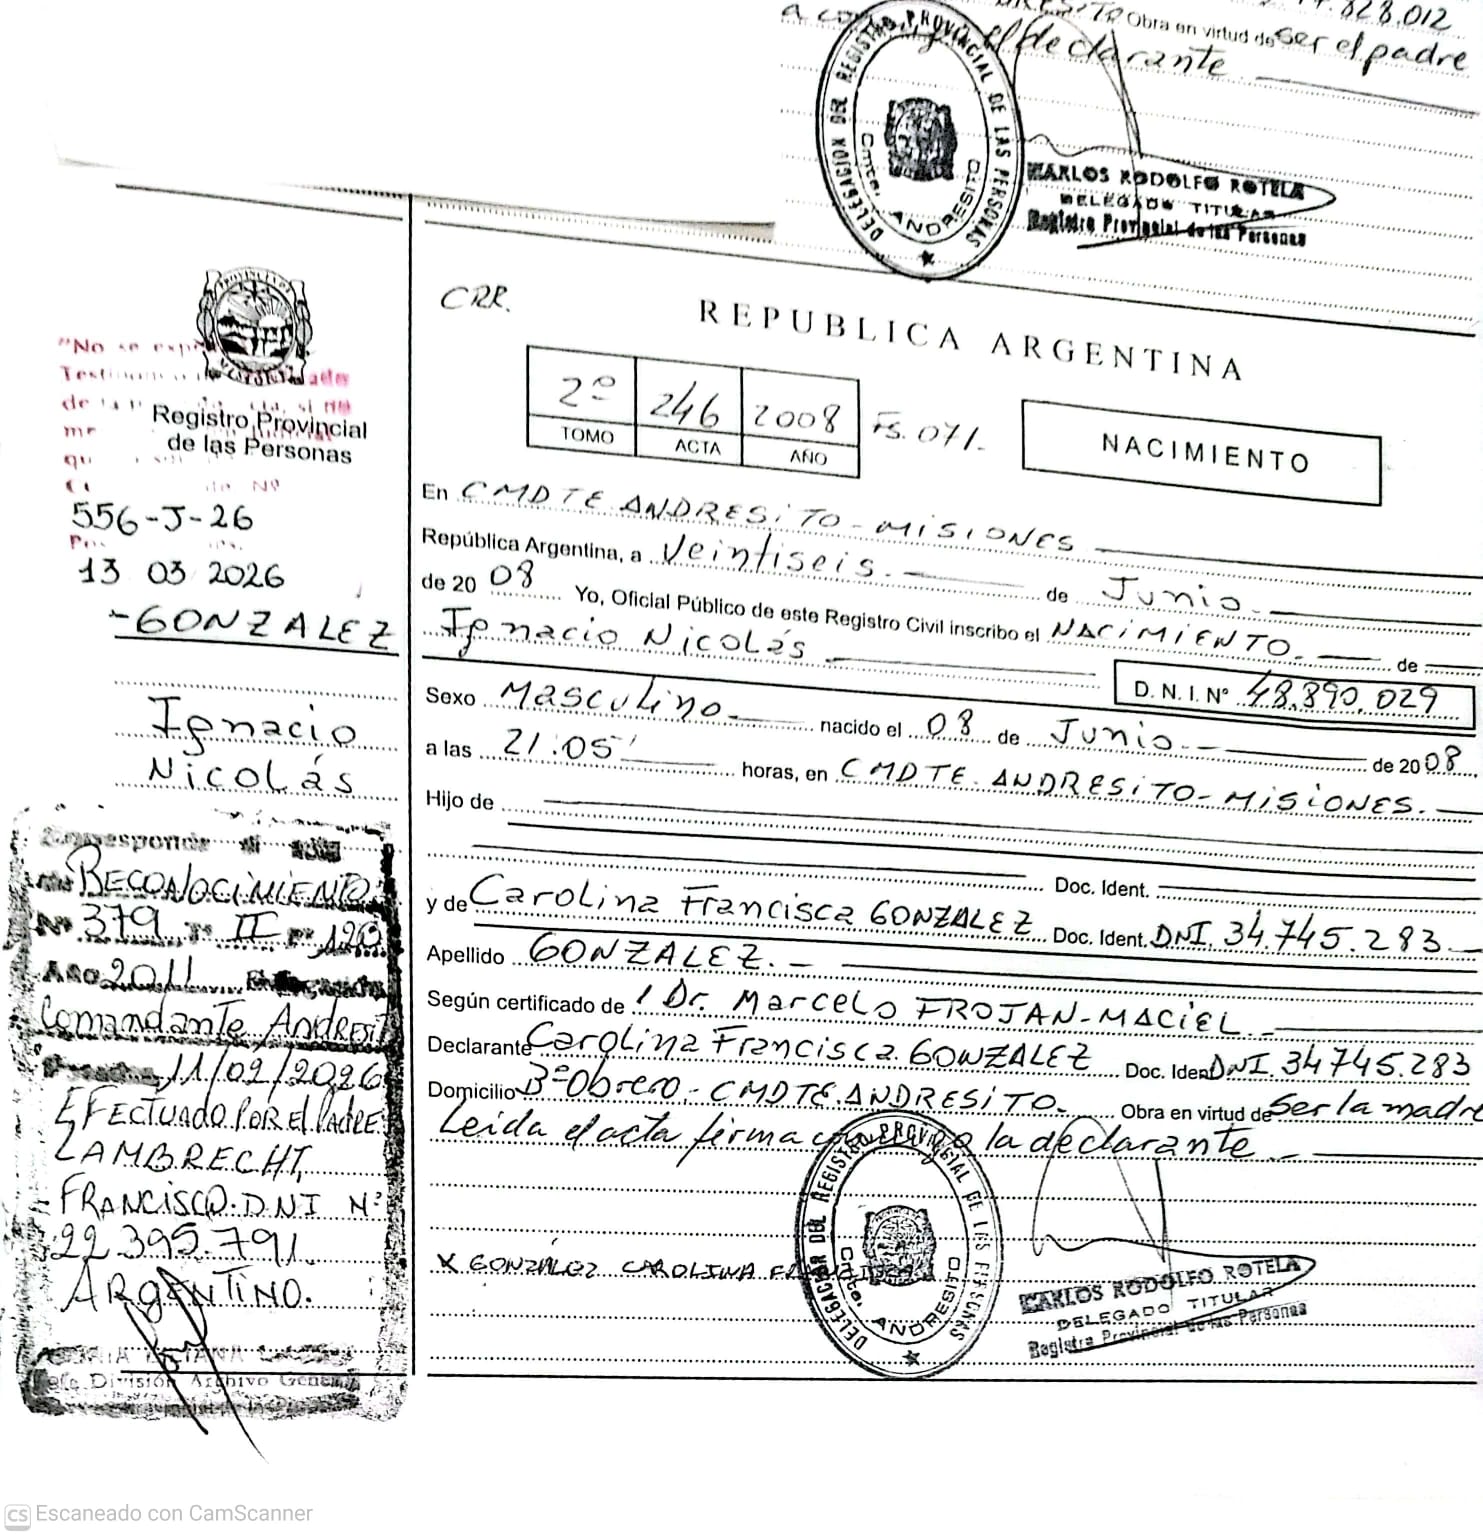 828.012
Obra en virtud de ser el padre
el declarante
DELEGACION DEL REGISTRO PROVINCIAL DE LAS PERSONAS
Cmte. ANDRESITO
CARLOS RODOLFO ROTELA
DELEGADO TITULAR
Registro Provincial de las Personas
CRR.
REPUBLICA ARGENTINA
2º 246 2008 Fs. 071.
TOMO ACTA AÑO
NACIMIENTO
"No se
de la
Registro Provincial
de las Personas
Nº
556-J-26
13 03 2026
-GONZALEZ
Ignacio
Nicolás
En CMDTE ANDRESITO - MISIONES
República Argentina, a Veintiseis. de Junio.
de 20 08 Yo, Oficial Público de este Registro Civil inscribo el NACIMIENTO. de
Ignacio Nicolás
D. N. I. N° 48.890.029
Sexo Masculino nacido el 08 de Junio. de 20 08.
a las 21:05' horas, en CMDTE. ANDRESITO - MISIONES.
Hijo de
Doc. Ident.
y de Carolina Francisca GONZALEZ Doc. Ident. DNI. 34.745.283
Apellido GONZALEZ.
Según certificado de Dr. Marcelo FROJAN-MACIEL.
Declarante Carolina Francisca GONZALEZ Doc. Iden DNI. 34745.283
Domicilio Bº Obrero - CMDTE. ANDRESITO. Obra en virtud de Ser la madre
Leida el acta firma la declarante
X GONZÁLEZ CAROLINA
DELEGACION DEL REGISTRO PROVINCIAL DE LAS PERSONAS
Cmte. ANDRESITO
CARLOS RODOLFO ROTELA
DELEGADO TITULAR
Registro Provincial de las Personas
Corresponde
RECONOCIMIENTO
Nº 379 Tº II Fº 120
Año 2011
Comandante Andresit
11/02/2026
EFECTUADO POR El PADRE
LAMBRECHT,
FRANCISCO. DNI Nº
22.395.791
ARGENTINO.
Jefe División Archivo General
CS Escaneado con CamScanner